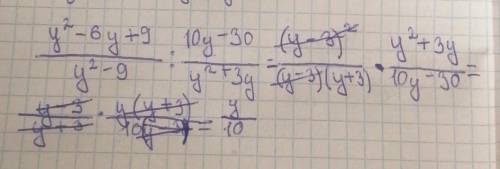 (y² - 6y + 9)/(y² - 9) : (10y - 30)/(y² + 3y) = (y - 3)²/((y - 3)(y + 3)) · (y² + 3y)/(10y - 30) =
(y - 3)/(y + 3) · y(y + 3)/(10(y - 3)) = y/10